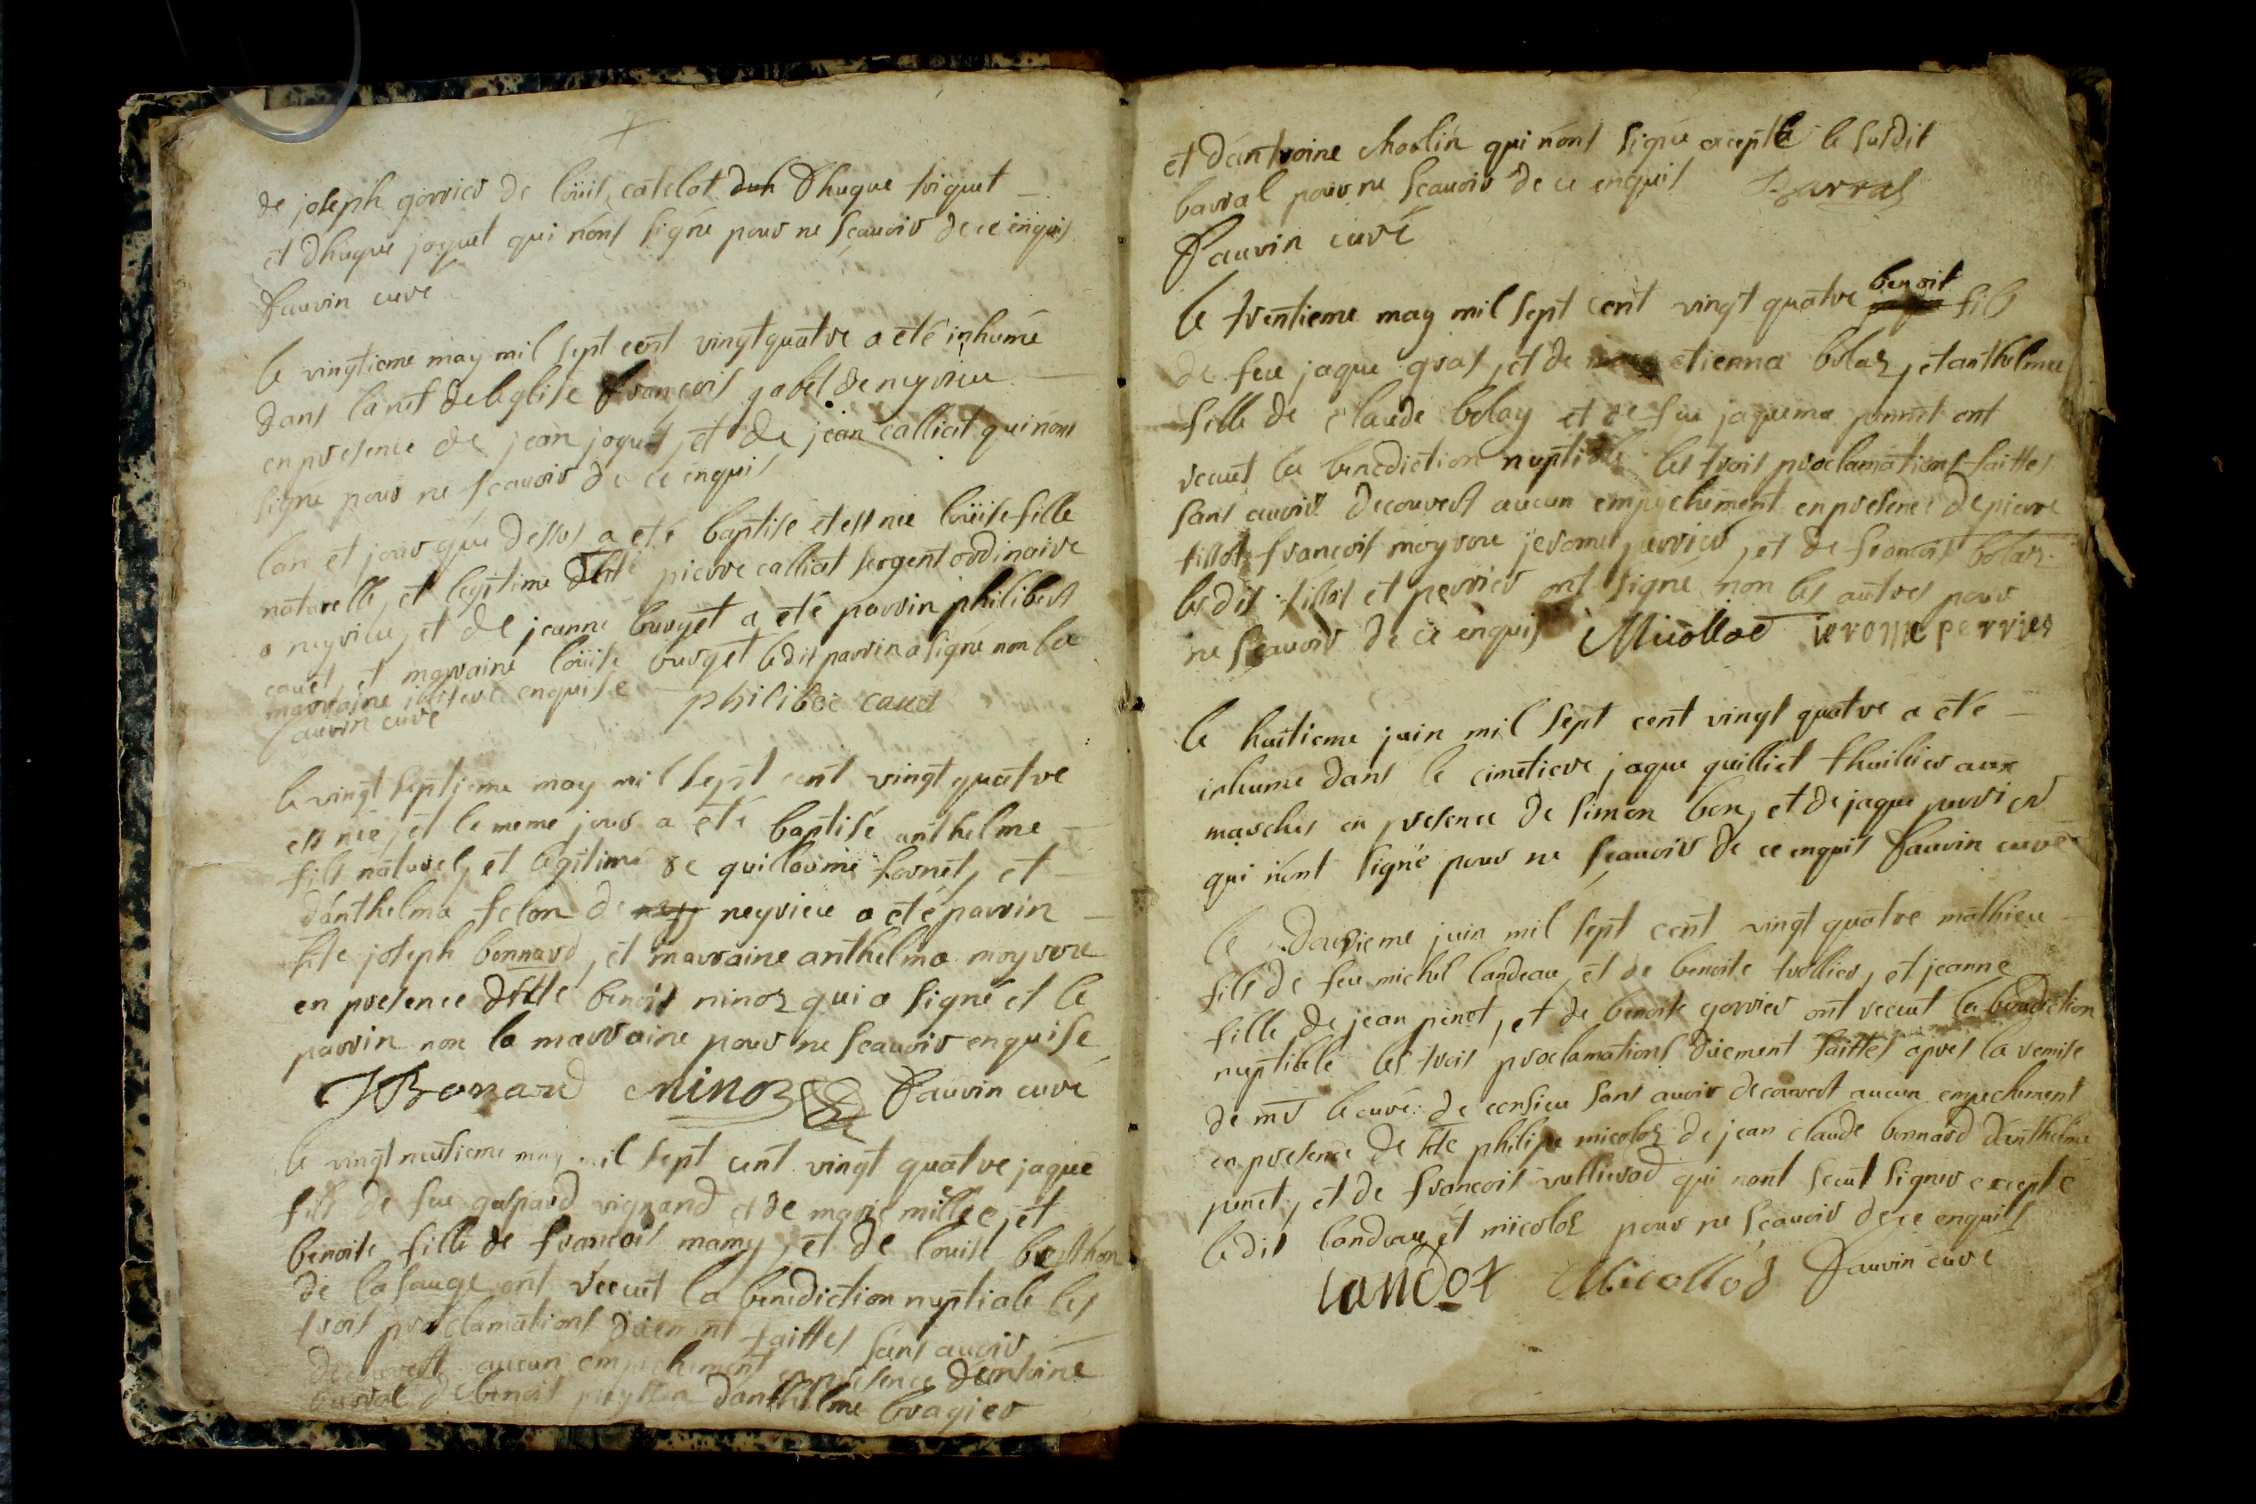 de joseph gorrier de loüis catelat duh dhugue triguet
et dhugue joguet qui n'ont signé pour ne scavoir de ce enquis
fauvin curé
le vingtieme may mil sept cent vingt quatre a eté inhumé
dans la nef de leglise françois gabet de neyrieu
en presence de jean joguet, et de jean calliat qui n'ont
signé pour ne scavoir de ce enquis
lan et jour que dessus a eté baptisé et est née loüise fille
naturelle, et legitime de hte pierre calliat sergent ordinaire
a neyrieu, et de jeanne burget a eté parrin philibert
cauet, et marraine loüise burget ledit parrin a signé non la
marraine illiterée enquise philiber cauet
fauvin curé
le vingt septieme may mil sept cent vingt quatre
est né, et le meme jour a eté baptisé anthelme
fils naturel, et legitime de guillaume fornet, et
d'anthelma felon de ney neyrieu a eté parrin
hte joseph bonnard, et marraine anthelma moyroux
en presence d'hte benoit ninoz qui a signé et le
parrin non la marraine pour ne scavoir enquise
JBonard ninoz fauvin curé
le vingt neufieme may mil sept cent vingt quatre jaque
fils de feu gaspard vignand et de marie millee, et
benoite fille de francois mamy, et de louise berthon
de lasauge ont reçeut la benediction nuptiale les
trois proclamations düement faittes sans avoir
decouvert aucun empechement en presence d'antoine
barral de benoit peysson d'anthelme bragier
et d'antroine chaslin qui n'ont signé excepté le susdit
barral pour ne scavoir de ce enquis Barral
fauvin curé
le trentieme may mil sept cent vingt quatre benoit fils
de feu jaque gras, et de etienna bolaz, et anthelma
fille de claude bolaz et de feu jaquema ponnet ont
receut la benediction nuptiale les trois proclamations faittes
sans avoir decouvert aucun empechement en presence de pierre
tissot francois moyroux jerome perrier, et de francois bolaz
lesdits tissot et perrier ont signé non les autres pour
ne scavoir de ce enquis Micolloz ierome perrier
le huitieme juin mil sept cent vingt quatre a eté
inhumé dans le cimetiere jaque guilliet thuilier aux
marches en presence de simon bon, et de jaque perrier
qui n'ont signé pour ne scavoir de ce enquis fauvin curé
le douzieme juin mil sept cent vingt quatre mathieu
fils de feu michel landeau, et de benoite trollier, et jeanne
fille de jean penet, et de benoite gorrier ont receut la benediction
nuptiale les trois proclamations düement faittes apres la remise
de mr le curé de consieu sans avoir decouvert aucun empechement
en presence de hte philipe micoloz de jean claude bonnard d'anthelme
penet, et de francois vullierod qui n'ont sceut signer excepté
ledit landeau et micoloz pour ne sçavoir de ce enquis
landot Micolloz fauvin curé